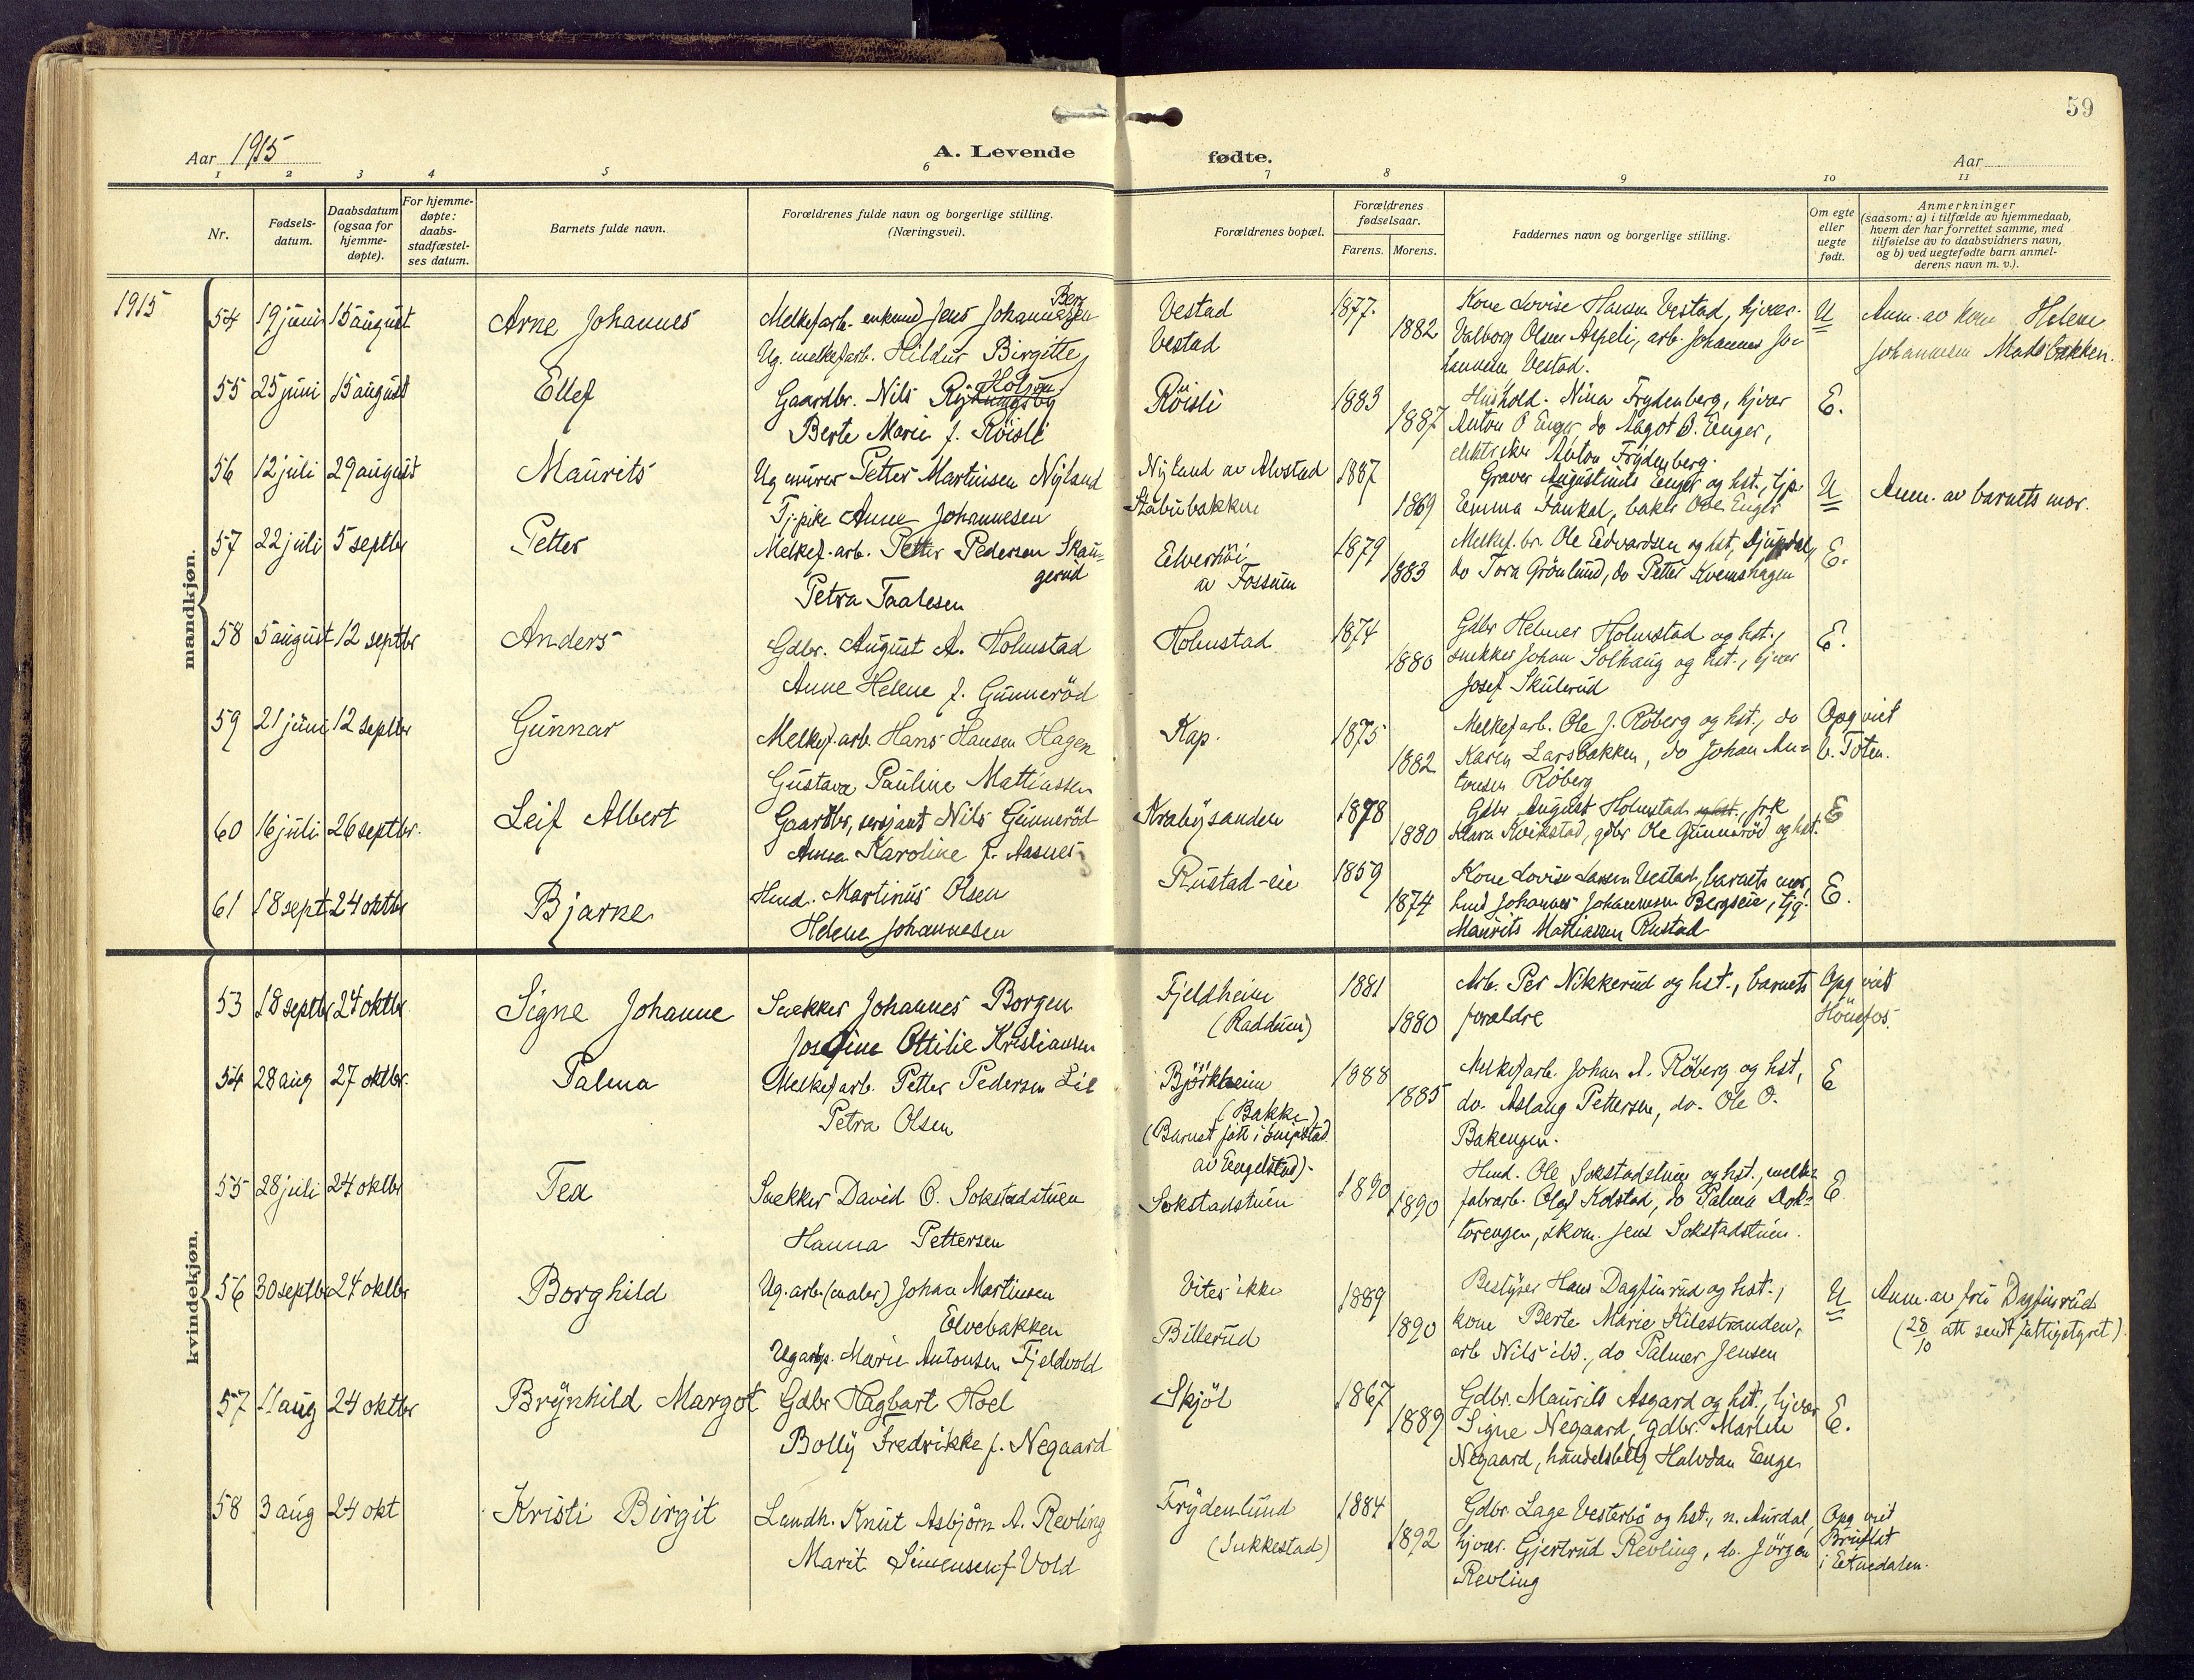 59
Aar 1915
A. Levende
fødte.
Aar
1 2 3 4 5 6 7 8 9 10 11
Nr.
Fødsels-
datum.
Daabsdatum
(ogsaa for
hjemme-
døpte).
For hjemme-
døpte:
daabs-
stadfæstel-
ses datum.
Barnets fulde navn.
Forældrenes fulde navn og borgerlige stilling.
(Næringsvei).
Forældrenes bopæl.
Forældrenes
fødselsaar.
Farens. Morens.
Faddernes navn og borgerlige stilling.
Om egte
eller
uegte
født.
Anmerkninger
(saasom: a) i tilfælde av hjemmedaab,
hvem der har forrettet samme, med
tilføielse av to daabsvidners navn,
og b) ved uegtefødte barn anmel-
derens navn m. v.).
1915
mandkjøn.
54 19 juni 15 august Arne Johannes
Melkefarb. enkemd Jens Johannesen Berg
Ug. melkefarb. Hildur Birgitte Holsen
Vestad
Vestad
1877.
1882
Kone Lovise Hansen Vestad, hjvær.
Valborg Olsen Aspeli, arb. Johannes Jo-
hannesen Vestad.
U
Anm. av kone Helene
Johannesen Madsbakken.
55 25 juni 15 august Ellef
Gaardbr. Nils
Berte Marie f. Röisli
Röisli
1883
1887
Hushold. Nina Frydenberg, hjvær
Anton O Enger, do Aagot O. Enger,
Anton Frydenberg.
E.
56 12 juli 29 august Maurits
Ug murer Petter Martinsen Nyland
Tj.pike Anne Johannesen
Nyland av Alvstad
Stabubakken
1887
1869
Graver Augustinus Enger og hst., tjp.
Emma Fankal, baker Ove Enger
U
Anm. av barnets mor.
57 22 juli 5 septbr Petter
Melkef. arb. Petter Pedersen Skau-
gerud
Petra Taalesen
Elverhöi
av Fossum
1879
1883
Melkef. br. Ole Edvardsen og hst, Djupdal,
do Tora Grönlund, do Petter Kvemshagen
E.
58 5 august 12 septbr Anders
Gdbr. August A. Holmstad
Anne Helene f. Gunneröd
Holmstad
1874
1880
Gdbr Helmer Holmstad og hst.,
snekker Johan Solhaug og hst., hjvær
Josef Skulerud
E.
59 21 juni 12 septbr Gunnar
Melkef. arb. Hans Hansen Hagen
Gustava Pauline Mattiassen
Kap.
1875
1882
Melkefarb. Ole J. Röberg og hst., do
Karen Larsbakken, do Johan An-
tonsen Röberg
Opg viet
V. Toten.
60 16 juli 26 septbr. Leif Albert
Gaardbr, sersjant Nils Gunneröd
Anna Karoline f. Aasnes
Krabysanden
1878
1880
Gdbr August Holmstad og hst., frk
Klara Kvikstad, gdbr Ole Gunneröd og hst.
E
61 18 sept 24 oktbr Bjarne
Hmd. Martinus Olsen
Helene Johannesen
Rustad-eie
1859
1874
Kone Lovise Larsen Vestad, barnets mor,
hmd Johannes Johannesen Bergseie, tjg.
Maurits Mathiassen Rustad
E.
kvindekjøn.
53 18 septbr 24 oktbr. Signe Johanne
Snekker Johannes Borgen
Josefine Ottilie Kristiansen
Fjeldheim
(Raddum)
1881
1880
Arb. Per Nikkerud og hst., barnets
forældre
Opg viet
Hönefos.
54 28 aug 27 oktbr. Palma
Melkefarb. Petter Pedersen Lie
Petra Olsen
Björkheim
(Bakke)
(Barnet född i
av Engelstad).
1888
1885
Melkefarb. Johan A. Röberg og hst,
do. Aslaug Pettersen, do. Ole O.
Bakengen.
E
55 28 juli 24 oktbr Tea
Snekker David O. Sokstadstuen
Hanna Pettersen
Sokstadstuen
1890
1890
Hmd. Ole Sokstadstuen og hst., melke
fabrarb. Olaf Kolstad, do Palma Dok-
torengen, skom. Jens Sokstadstuen.
E
56 30 septbr 24 oktbr Borghild
Ug. arb. (maler) Johan Martinsen
Elvebakken
Ug arbp. Marie Antonsen Fjeldvold
Vites ikke
Billerud
1889
1890
Bestyrer Hans Dagfinrud og hst.,
kone Berte Marie Kilestranden,
arb Nils ibd., do Palmer Jensen
U
Anm. av fru Dagfinrud
(28/10 att sendt fattigstyret).
57 11 aug 24 oktbr Brynhild Margot
Gdbr Hagbart Hoel
Bolly Fredrikke f. Negaard
Skjöl
1867
1889
Gdbr. Maurits Asgard og hst., hjvær
Signe Negaard, gdbr. Martin
Negaard, handelsbetj Halvdan Enger
E.
58 3 aug 24 okt Kristi Birgit
Landh. Knut Asbjörn A. Revling
Marit Simensen f. Vold
Frydenlund
(Sukkestad)
1884
1892
Gdbr. Lage Vesterbö og hst., n. Aurdal,
hjvær. Gjertrud Revling, do. Jörgen
Revling
Opg viet
Bruflat
i Etnedalen.